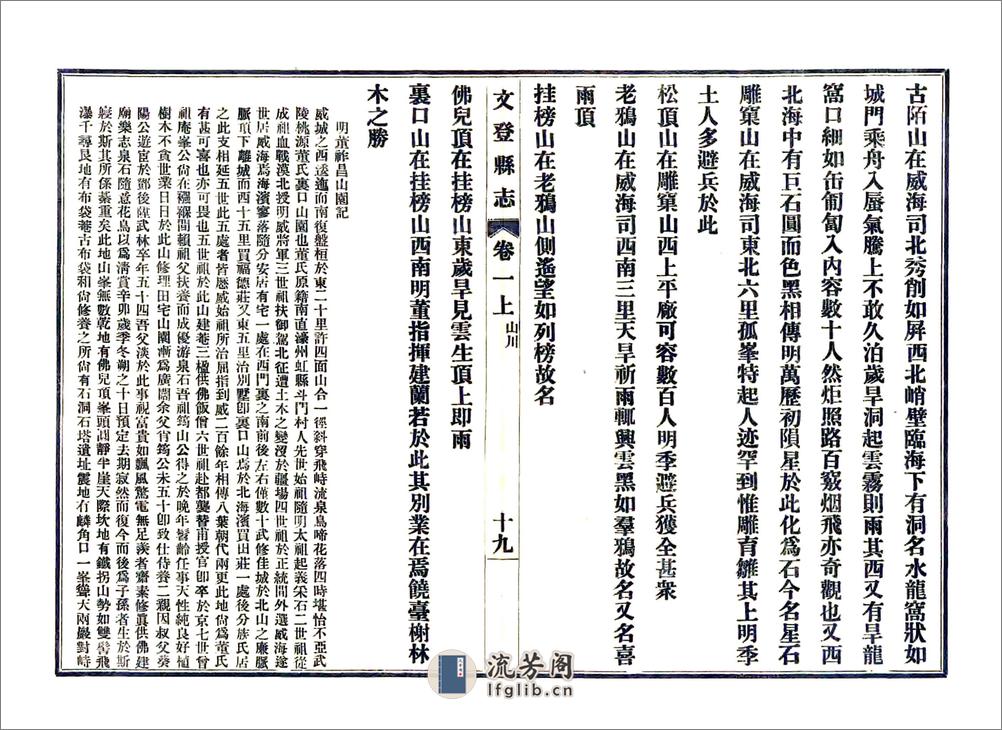 古陌山在威海司北秀削如屏西北峭壁臨海下有洞名水龍窩狀如
城門乘舟入蜃氣騰上不敢久泊歲旱洞起雲霧則雨其西又有旱龍
窩口細如缶匍匐入內容數十人然炬照路百竅烟飛亦奇觀也又西
北海中有巨石圓而色黑相傳明萬歷初隕星於此化爲石今名星石
雕窠山在威海司東北六里孤峯特起人迹罕到惟雕育雛其上明季
土人多避兵於此
松頂山在雕窠山西上平厰可容數百人明季避兵獲全甚衆
老鴉山在威海司西南三里天旱祈雨輒興雲黑如羣鴉故名又名喜
雨頂
挂榜山在老鴉山側遙望如列榜故名
文登縣志
卷一上
山川
十九
佛兒頂在挂榜山東歲旱見雲生頂上即雨
裏口山在挂榜山西南明董指揮建蘭若於此其別業在焉饒臺榭林
木之勝
明董祚昌山園記
威城之西逶迤而南復盤桓於東二十里許四面山合一徑斜穿飛峙流泉鳥啼花落四時堪怡不亞武
陵桃源董氏裏口山園也董氏原籍南直濠州虹縣斗門村人先世始祖隨明太祖起義采石二世祖從
成祖血戰漠北授明威將軍三世祖扶御駕北征遭土木之變沒於疆場四世祖於正統間外選威海遂
世居威海爲海濱寥落隨分安居有宅一處在西門裏之南前後左右僅數十武修佳城於北山之廉脈
脈頂下離城而四十五里買福德莊又東五里治別墅卽裏口山爲於北海濱買田莊一處後分族氏居
之此支相延五世此五處者皆歷威始祖所治屈指到威二百餘年相傳八葉朝代兩更此地尙爲董氏
有甚可喜也亦可畏也五世祖於此山建菴三楹供佛飯僧六世祖赴都襲替甫授官卽卒於京七世曾
祖庵峯公尙在襁褓間賴祖父扶養而成優游泉石吾祖筠山公得之於晚年髫齡任事天性純良好植
樹木不貪世業日日於此山修理田宅山園漸爲廣闊余父肖筠公未五十卽致仕侍養二親因叔父葵
陽公遊宦於鄧後蒞武林卒年五十四吾父淡於此事視富貴如飄風驚電無足羨者齋素修眞供佛建
廟樂志泉石隨意花鳥以爲淸賞辛卯歲季冬朔之十日預定去期寂然而復今而後爲子孫者生於斯
寢於斯其所係綦重矣此地山峯無數乾地有佛兒頂峯頭圓靜半崖天際坎地有鐵拐山勢如雙髻飛
瀑千尋艮地有布袋菴古布袋和尙修養之所尙有石洞石塔遺址震地有麟角口一峯聳天兩嚴對峙
流芳阁
lfglib.cn